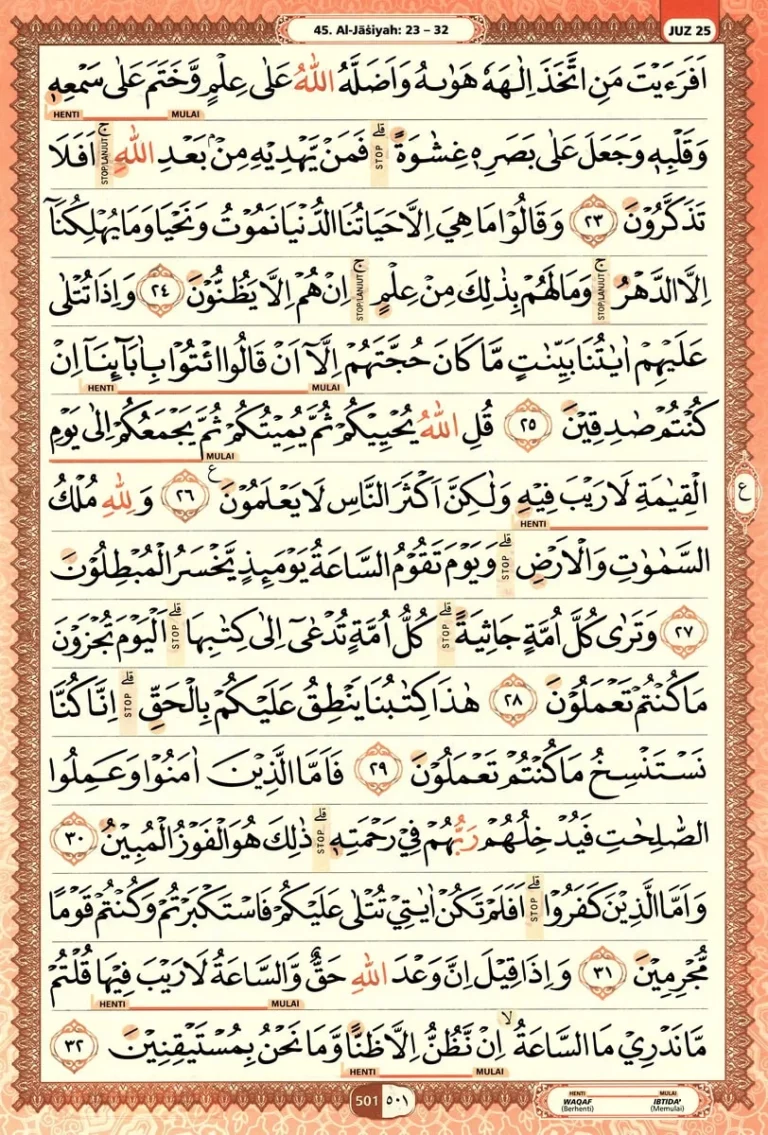 45. Al-Jāśiyah: 23 – 32
JUZ 25
اَفَرَءَيْتَ مَنِ اتَّخَذَ اِلٰهَهٗ هَوٰىهُ وَاَضَلَّهُ اللّٰهُ عَلٰى عِلْمٍ وَّخَتَمَ عَلٰى سَمْعِهٖ
HENTI MULAI
وَقَلْبِهٖ وَجَعَلَ عَلٰى بَصَرِهٖ غِشٰوَةًۗ STOP فَمَنْ يَّهْدِيْهِ مِنْۢ بَعْدِ اللّٰهِ ۚ STOP/LANJUT اَفَلَا
تَذَكَّرُوْنَ ٢٣ وَقَالُوْا مَا هِيَ اِلَّا حَيَاتُنَا الدُّنْيَا نَمُوْتُ وَنَحْيَا وَمَا يُهْلِكُنَآ
اِلَّا الدَّهْرُۚ STOP/LANJUT وَمَا لَهُمْ بِذٰلِكَ مِنْ عِلْمٍۚ STOP/LANJUT اِنْ هُمْ اِلَّا يَظُنُّوْنَ ٢٤ وَاِذَا تُتْلٰى
عَلَيْهِمْ اٰيٰتُنَا بَيِّنٰتٍ مَّا كَانَ حُجَّتَهُمْ اِلَّآ اَنْ قَالُوا ائْتُوْا بِاٰبَاۤىِٕنَآ اِنْ
HENTI MULAI
كُنْتُمْ صٰدِقِيْنَ ٢٥ قُلِ اللّٰهُ يُحْيِيْكُمْ ثُمَّ يُمِيْتُكُمْ ثُمَّ يَجْمَعُكُمْ اِلٰى يَوْمِ
MULAI
الْقِيٰمَةِ لَا رَيْبَ فِيْهِ وَلٰكِنَّ اَكْثَرَ النَّاسِ لَا يَعْلَمُوْنَ ࣖ ٢٦ وَلِلّٰهِ مُلْكُ
ع
HENTI
السَّمٰوٰتِ وَالْاَرْضِۗ STOP وَيَوْمَ تَقُوْمُ السَّاعَةُ يَوْمَىِٕذٍ يَّخْسَرُ الْمُبْطِلُوْنَ
٢٧ وَتَرٰى كُلَّ اُمَّةٍ جَاثِيَةًۗ STOP كُلُّ اُمَّةٍ تُدْعٰٓى اِلٰى كِتٰبِهَاۗ STOP اَلْيَوْمَ تُجْزَوْنَ
مَا كُنْتُمْ تَعْمَلُوْنَ ٢٨ هٰذَا كِتٰبُنَا يَنْطِقُ عَلَيْكُمْ بِالْحَقِّۗ STOP اِنَّا كُنَّا
نَسْتَنْسِخُ مَا كُنْتُمْ تَعْمَلُوْنَ ٢٩ فَاَمَّا الَّذِيْنَ اٰمَنُوْا وَعَمِلُوا
الصّٰلِحٰتِ فَيُدْخِلُهُمْ رَبُّهُمْ فِيْ رَحْمَتِهٖۗ STOP ذٰلِكَ هُوَ الْفَوْزُ الْمُبِيْنُ ٣٠
وَاَمَّا الَّذِيْنَ كَفَرُوْاۗ STOP اَفَلَمْ تَكُنْ اٰيٰتِيْ تُتْلٰى عَلَيْكُمْ فَاسْتَكْبَرْتُمْ وَكُنْتُمْ قَوْمًا
مُّجْرِمِيْنَ ٣١ وَاِذَا قِيْلَ اِنَّ وَعْدَ اللّٰهِ حَقٌّ وَّالسَّاعَةُ لَا رَيْبَ فِيْهَا قُلْتُمْ
HENTI MULAI
مَّا نَدْرِيْ مَا السَّاعَةُ ۙ اِنْ نَّظُنُّ اِلَّا ظَنًّا وَّمَا نَحْنُ بِمُسْتَيْقِنِيْنَ ٣٢
HENTI MULAI
501 ٥٠١
HENTI MULAI
WAQAF IBTIDA'
(Berhenti) (Memulai)